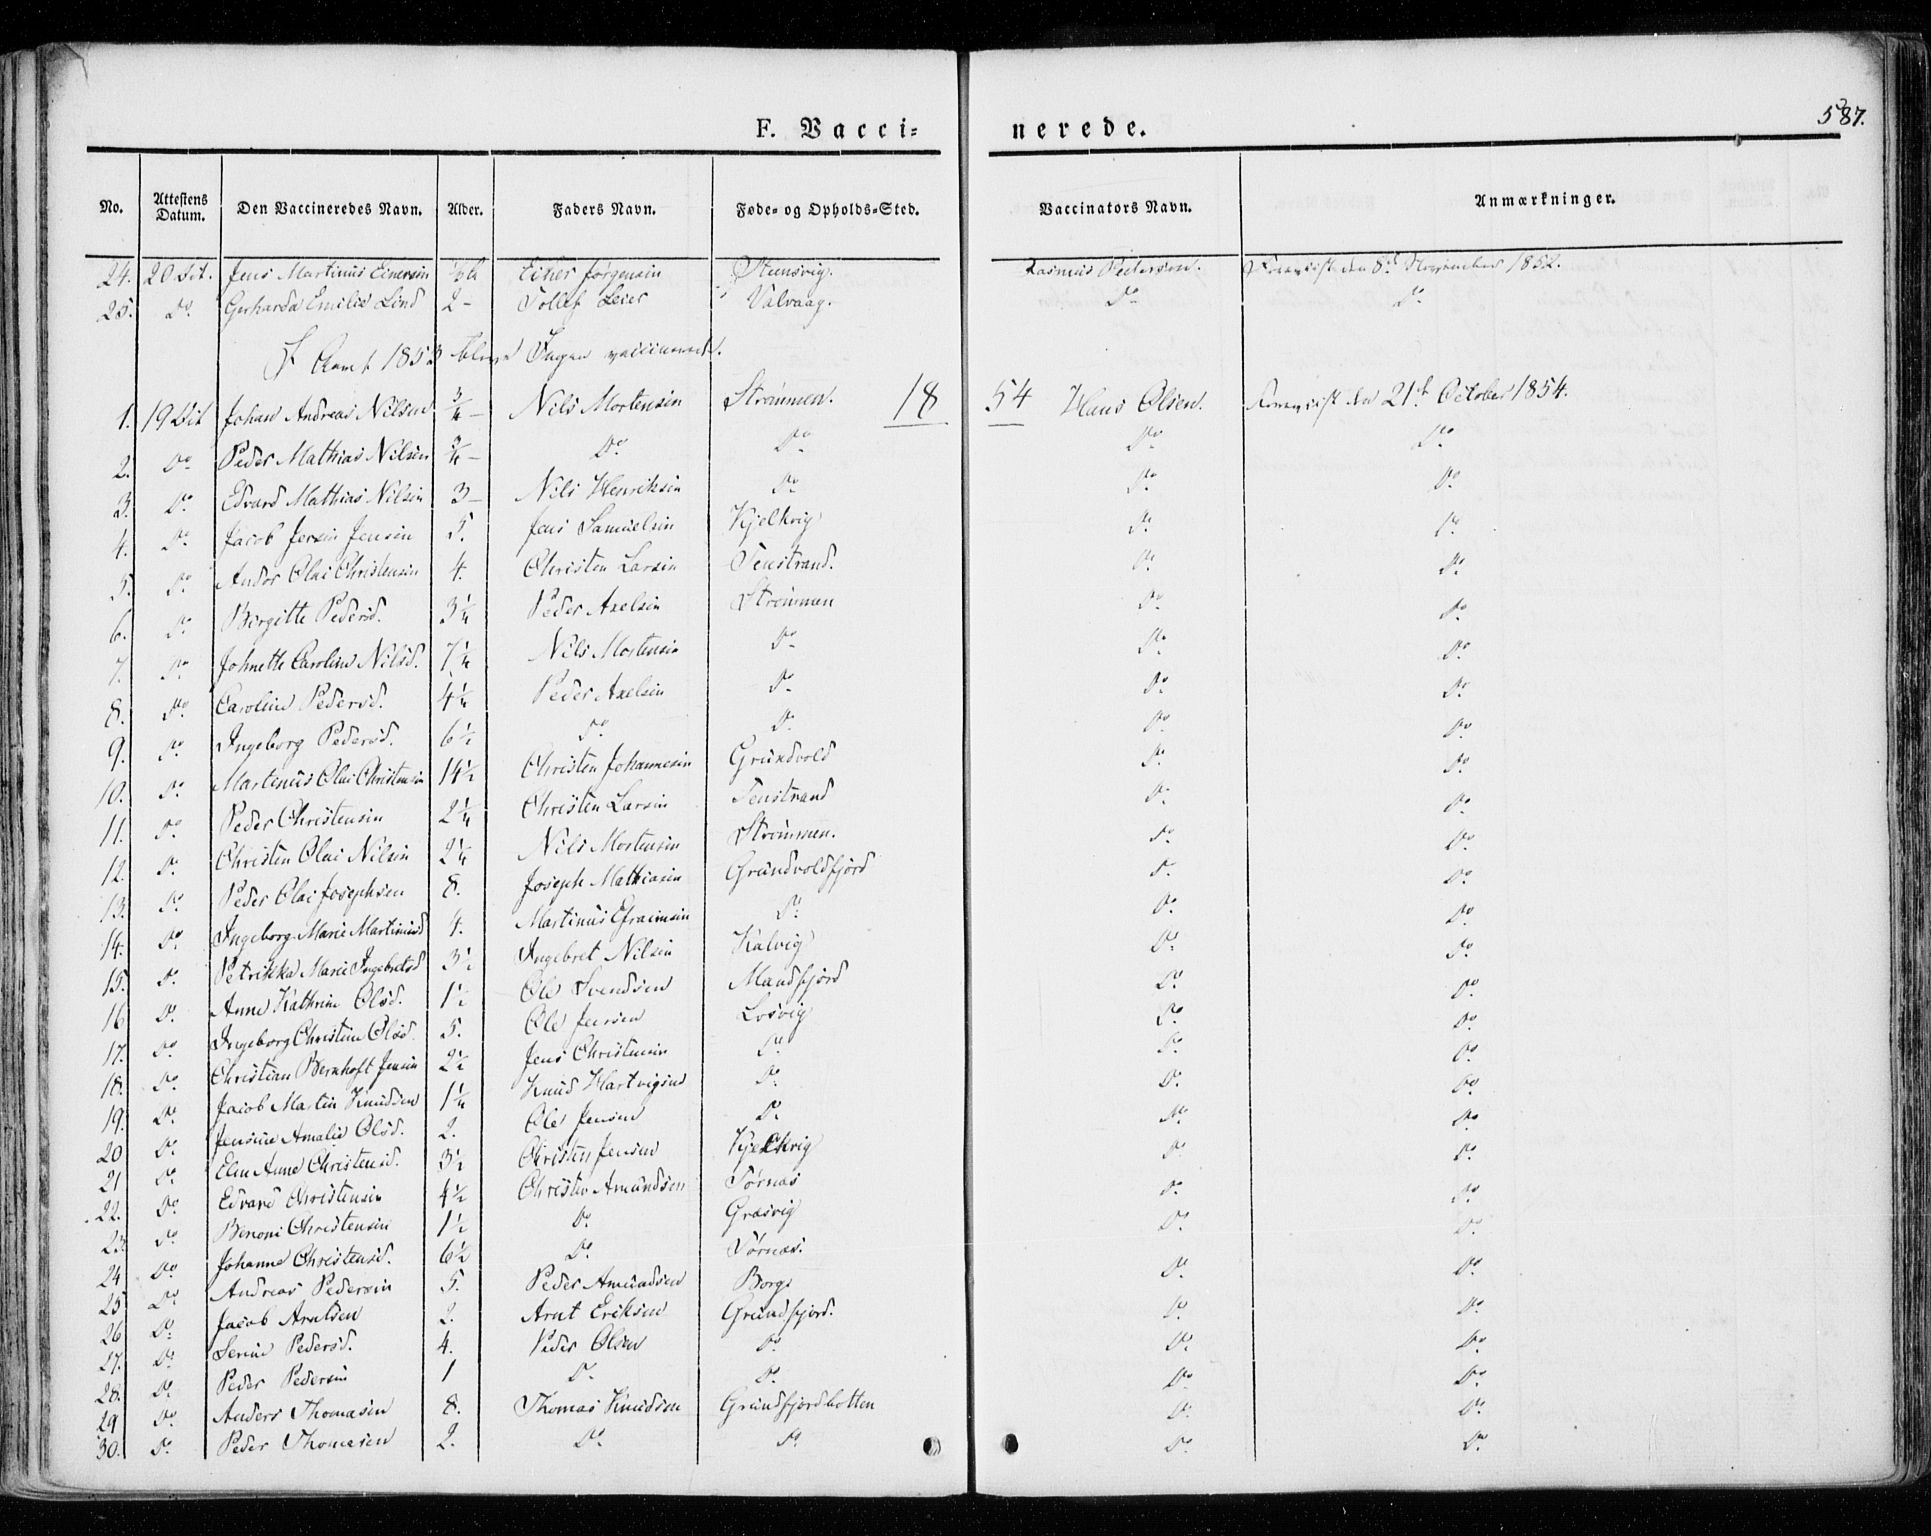 587.
F. Vacci=nerede.
No. Attestens Datum. Den Vaccineredes Navn. Alder. Faders Navn. Føde= og Opholds=Sted. Vaccinators Navn. Anmærkninger.
24. 20 Jens Martinus Einersen Einer Jørgensen Stensvig. Rasmus Pedersen. 8de November 1852.
25. Do Gerharda Emilie Lind 2 – Tollef Leier Valvaag. Do Do
I Aaret 1853 blev Ingen vaccinerede.
1854
1. 19 Johan Andreas Nilsen 3/4 – Nils Mortensen Strømmen. Hans Olsen. 21de October 1854.
2. Do Peder Mathias Nilsen 3/4 – Do Do Do Do
3. Do Edvard Mathias Nilsen 3 – Nils Henriksen Do Do Do
4. Do Jacob Jensen 5. Jens Samuelsen Kjelkvig Do Do
5. Do Andor Olai Christensen 4. Christen Larsen Tenstrand. Do Do
6. Do Birgitte Pedersd. 3 1/4 Peder Axelsen Strømmen Do Do
7. Do Johnette Caroline Nilsd. 7 1/4 Nils Mortensen Do Do Do
8. Do Caroline Pedersd. 4 1/4 Peder Axelsen Do Do Do
9. Do Ingeborg Pedersd. 6 1/2 Do Do Do Do
10. Do Martenus Olai Christensen 14 1/2 Christen Johannesen Grundvold Do Do
11. Do Peder Christensen 2 1/4 Christen Larsen Tenstrand Do Do
12. Do Christen Olai Nilsen 2 1/4 Nils Mortensen Strømmen. Do Do
13. Do Peder Olai Josephsen 8. Joseph Mathiasen Grundvoldfjord Do Do
14. Do Ingeborg Marie Martinusd 4. Martinus Efraimsen Do Do Do
15. Do Petrikka Marie Ingebretsd 3 1/2 Ingebret Nilsen Kalvig Do Do
16 Do Anne Kathrine Olsd. 1 1/2 Ole Svendsen Mandfjord Do Do
17. Do Ingeborg Christine Olsd. 5. Ole Jensen Losvig Do Do
18. Do Christian Bernhoft Jensen 2 1/2 Jens Christensen Do Do Do
19. Do Jacob Martin Knudsen 1 1/4 Knud Hartvigsen Do Do Do
20 Do Jensine Amalie Olsd. 2. Ole Jensen Do Do Do
21 Do Elen Anne Christensd. 3 1/2 Christen Jensen Kjelkvig Do Do
22. Do Edvard Christensen 4 1/2 Christen Amundsen Tørnæs Do Do
23. Do Benoni Christensen 1 1/2 Do Græsvig Do Do
24 Do Johanne Christensd. 6 1/2 Do Tørnæs.
25 Do Andreas Pedersen 5. Peder Amundsen Borge Do Do
26 Do Jacob Arntsen 2. Arnt Eriksen Grundfjord. Do Do
27. Do Serine Pedersd. 4. Peder Olsen Do Do Do
28. Do Peder Pedersen 1 Do Do Do Do
29 Do Anders Thomasen 8. Thomas Knudsen Grundfjordbotten Do Do
30. Do Peder Thomesen 2. Do Do Do Do